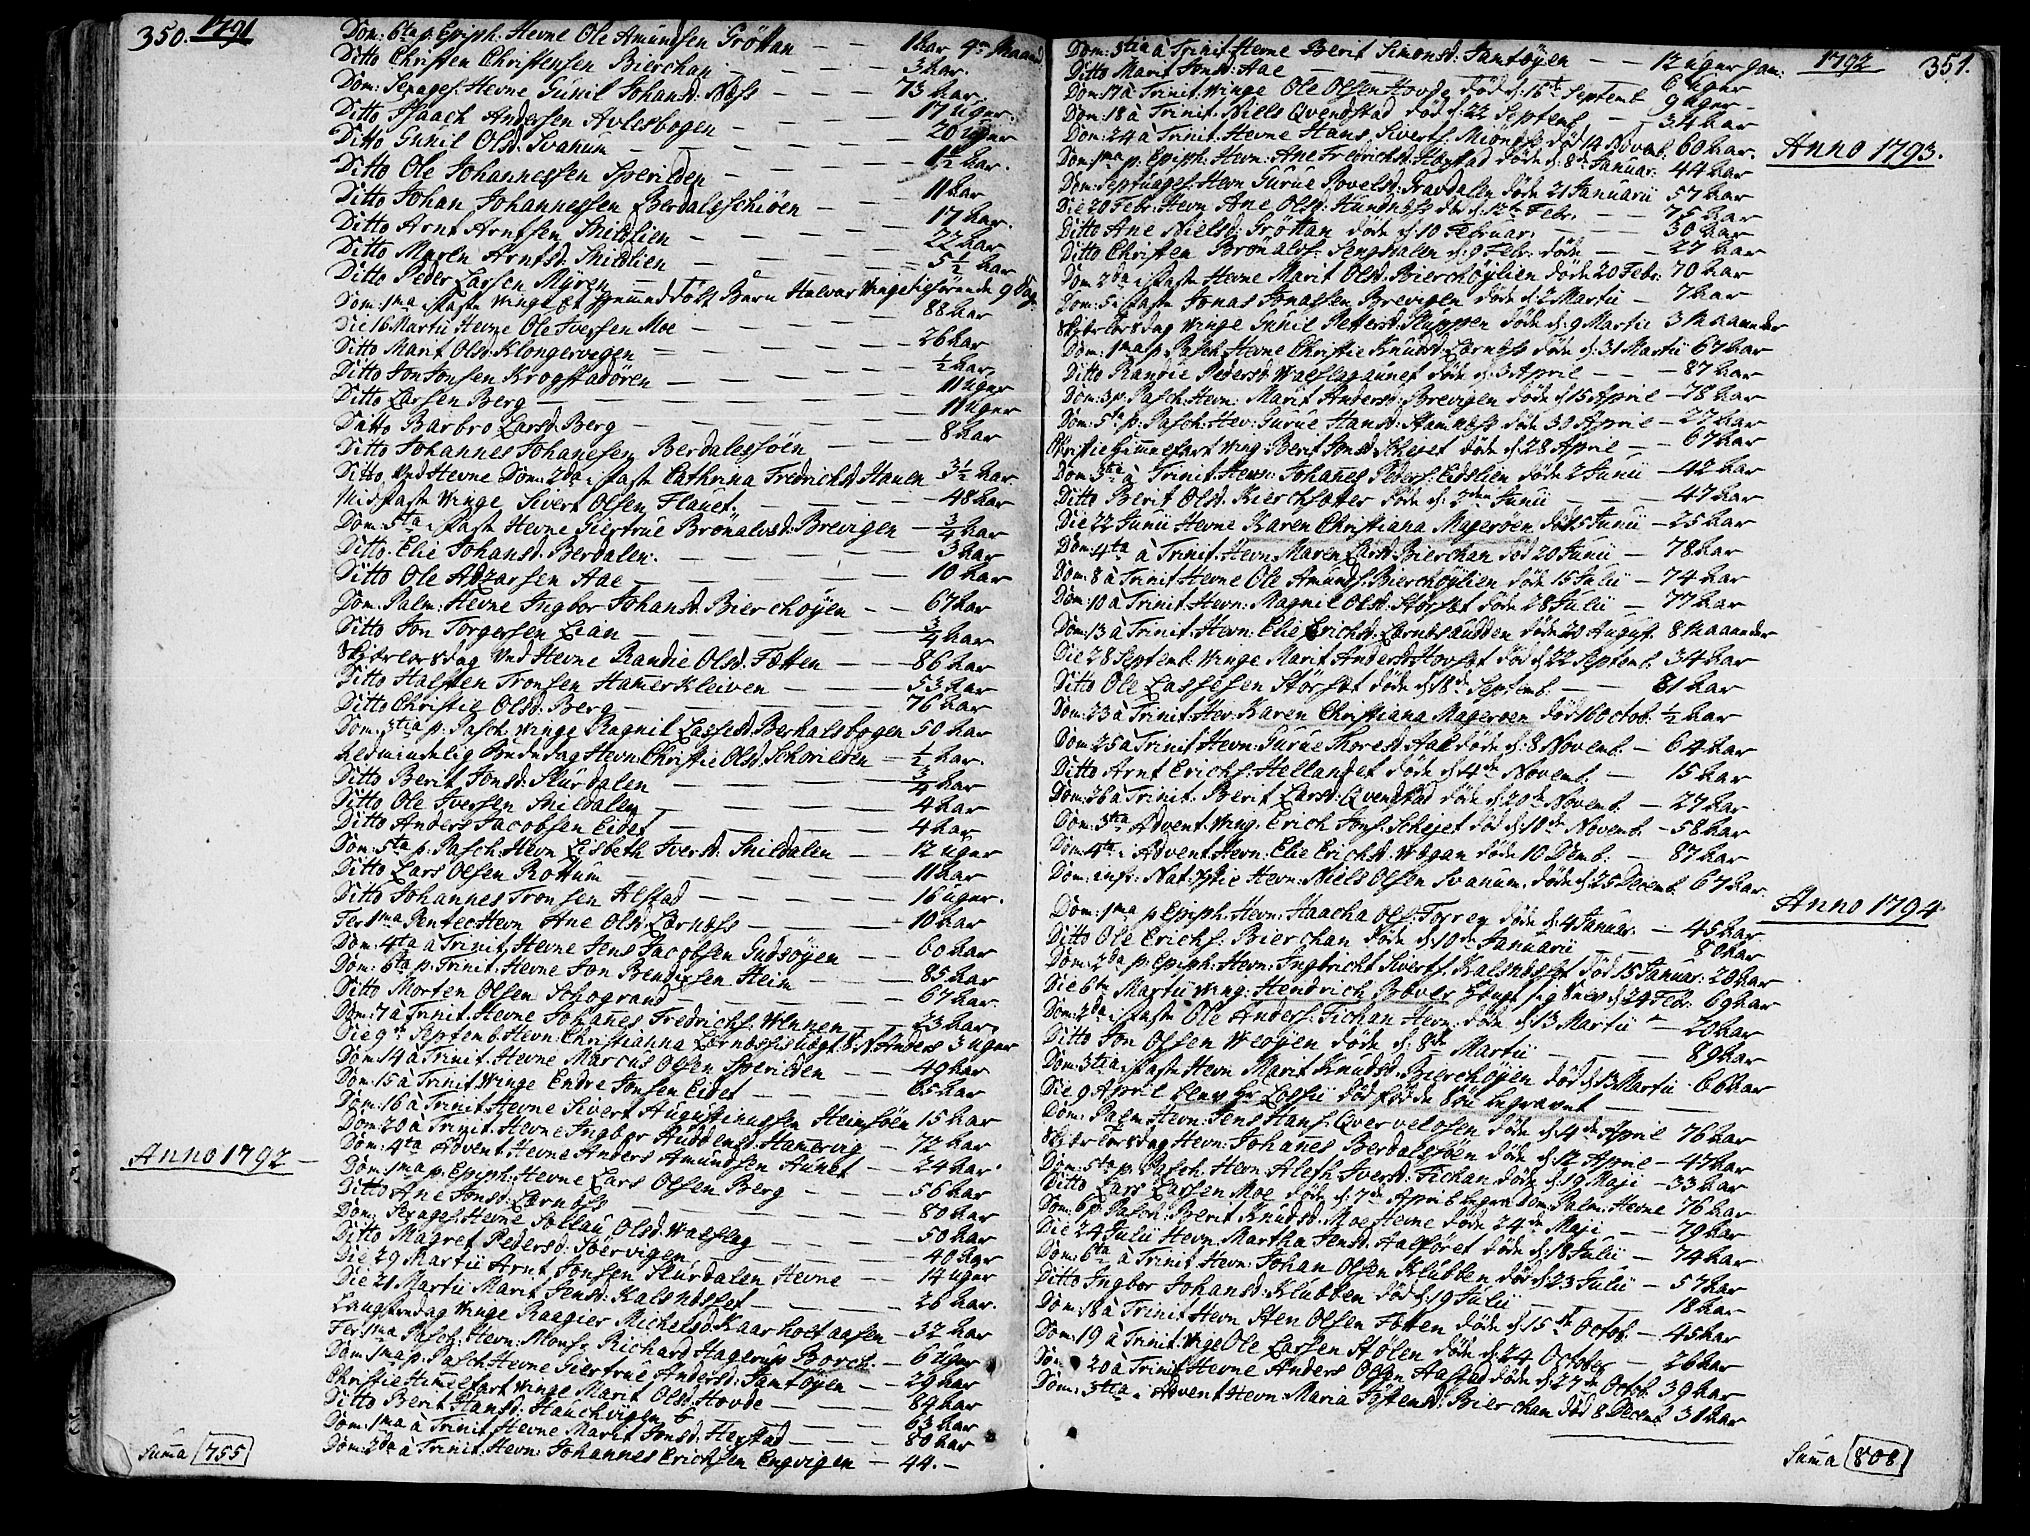 350. 1791
Dom: 6ta p. Epiph: Hevne Ole Amundsen Gröttan — — 1 Aar 4re Maan:
Ditto Christen Christensen Bierchan — — — 3 Aar.
Dom: Sexages: Hevne Gunil Johansd: Næss — — — 73 Aar.
Ditto Isaach Andersen Avlesbogen — — — 17 Uger.
Ditto Gunil Olsd: Svanum — — — 20 Uger
Ditto Ole Johannessen Sperilden — — — 1½ Aar.
Ditto Johan Johannessen Berdalsschiöen — — — 11 Aar
Ditto Arnt Arntsen Skildlien — — — 17 Aar.
Ditto Maren Arntsd: Skildlien — — — 22 Aar
Ditto Peder Larsen Myren — — — 5½ Aar
Dom: 1ma i faste Vinge Et Hiemmedöbt Barn Halvor Vingeligrönnde 9 Dage
Die 16 Martii Hevne Ole Iversen Moe — — — 88 Aar
Ditto Marit Olsd: Klongervegen — — — 26 Aar
Ditto Jon Jonsen Krogstadören — — — ½ Aar
Ditto Larsen Berg — — — 11 Uger
Ditto Barbro Larsd: Berg — — — 11 Uger
Ditto Johannes Johanesen Berdalessöen — — — 8 Aar
Ditto Ved Hevne Dom: 2da i faste Cathrina Fredrichsd: Stamen 3½ Aar
Midfaste Vinge Sivert Olsen Flauet. — — — 48 Aar
Dom: 5ta i faste Hevne Giertrue Brönalvsd: Brevigen — ¾ Aar
Ditto Elie Johansd: Berdalen. — — — 3 Aar
Ditto Ole Adzarsen Aae — — — 10 Aar
Dom: Palm: Hevne Ingbor Johansd: Bierchöyen — — 67 Aar
Ditto Jon Torgersen Leian — — — ¾ Aar
Skjærtorsdag Ved Hevne Randie Olsd: Fætten — — 86 Aar
Ditto Halsten Tronsen Hamerkleiven — — — 53 Aar
Ditto Christie Olsd: Berg — — — 76 Aar
Dom: 3tia p: Pasch: Vinge Magnil Lassesd: Berkalsbogen 50 Aar
Almindelig Bededag Hevn: Christie Olsd: Schorilden — ½ Aar.
Ditto Berit Jonsd: Skurdalen — — — ¾ Aar
Ditto Ole Iversen Snildalen — — — 4 Aar
Ditto Anders Jacobsen Eidet — — — 4 Aar
Dom: 5ta p. Pasch: Hevn Lisbeth Iversd: Snildalen — — 12 Uger
Ditto Lars Olsen Rottum — — — 11 Aar
Ditto Johannes Tronsen Alstad — — — 16 Uger.
Fer: 1ma Pentec Hevn Ane Olsd: Lernæss — — — 10 Aar
Dom: 4ta à Trinit: Hevne Jens Jacobsen Gudsöyen — — 60 Aar
Dom: 6ta p. Trinit: Hevne Jon Bendixsen Heim — — 85 Aar
Ditto Morten Olsen Schogrand — — — 67 Aar.
Dom: 7 à Trinit. Hevne Johanes Fredrichs: Wennen — — 23 Aar
Die 9de Septemb: Hevn: Christianna Lernæss 3 Uger
Dom: 14 à Trinit: Hevne Marcus Olsen Sperilden — — 49 Aar
Dom: 15 à Trinit: Vinge Endre Jonsen Eidet — — 65 Aar
Dom: 16 à Trinit: Hevne Sivert Augustinussen Heimsöen 15 Aar
Dom: 20 à Trinit: Hevne Ingbor Auddensd: Hamervig — 72 Aar
Dom: 4ta Advent: Hevne Anders Amundsen Aunet — 24 Aar.
Anno 1792 —
Dom: 1ma p. Epiph: Hevne Lars Olsen Berg — — — 56 Aar
Ditto Ane Jonsd: Lernæss — — — 80 Aar
Dom: Sexages: Hevne Sollau Olsd: Waslag — — — 50 Aar
Ditto Magret Pedersd: Soervigen — — — 40 Aar
Die 29 Martii Arnt Jonsen Skurdalen Hevne — — 14 Uger
Die 21 Martii Marit Jensd: Kalsnesset — — — 26 Aar.
Langfredag Vinge Raagier Michelsd: Kaarholtaasen — 32 Aar
Fer: 1ma Pasch: Hevn: Mons: Richard Hagerup Borch. — 6 Uger
Dom: 1ma p. Pasch: Hevne Giertrue Andersd: Jamtöyen — — 29 Aar
Christie Himelfart Vinge Marit Olsd: Hovde — — — 84 Aar
Ditto Berit Hansd: Hauchvigen — — — 63 Aar
Dom: 1ma à Trinit Hevne Marit Jonsd: Hegstad — — 80 Aar
Dom: 2da à Trinit. Hevn: Johannes Erichsen Engvigen — 44. —
Summa 755
1792 351.
Dom: 3tia à Trinit: Hevne Berit Simonsd: Jamtöyen — — 12 Uger gam:
Ditto Marit Jonsd: Aae — — — 6 Uger
Dom: 17 à Trinit: Vinge Ole Olsen Hovde död d: 16de Septemb 9 Uger —
Dom: 18 à Trinit: Niels Qvendstad död d: 22 Septemb — 34 Aar
Dom: 24 à Trinit: Hevne Hans Siverts: Miönes död 14 Novemb: 60 Aar.
Anno 1793.
Dom: 1ma p. Epiph: Hevn: Ane Fredrichsd: Hegstad döde d: 8de Januar: 44 Aar
Dom: Septuages: Hevn Gurue Povelsd: Fravdalen döde 21 Januarii 57 Aar
Die 20 Febr: Hevn Ane Olsd: Hundnæs död d: 12te Febr. — — 75 Aar
Ditto Ane Nielsd: Gröttan döde d: 10 Februar. — — 30 Aar
Ditto Christen Brönalvs: Sengsdalen d: 9 Febr: döde — — 27 Aar
Dom: 2da i faste Hevne Marit Olsd: Bierchöylien döde 20 Febr. 70 Aar
Dom: 5 i faste Jonas Jonassen Brevigen döde d: 2 Martii — 7 Aar
Skjærtorsdag Vinge Gunil Pettersd: Sluppen döde d: 9 Martii 3 Maaneder
Dom: 1ma p: Pasch: Hevne Christie Knudsd: Lernæss döde d: 31 Martii 67 Aar
Ditto Randie Pedersd: Waslagaunet döde d: 3 April — — 87 Aar
Dom: 3 p. Pasch: Hevn: Marit Andersd: Brevigen döde d: 15 April — 78 Aar
Dom: 5ta p: Pasch: Hev: Gurue Hansd: Stamnæss döde 30 April — 22 Aar
Christie Himmelfart Ving: Berit Jonsd: Scheiet döde d: 28 April — — 67 Aar
Dom: 3tia à Trinit: Hevn: Johanes Peders: Eidslien döde 2 Junii — 42 Aar
Ditto Berit Olsd: Kierchsæter döde d: 2den Junii — — 47 Aar
Die 22 Junii Hevne Karen Christiana Magerøen död 5 Junii — 25 Aar
Dom: 4ta à Trinit: Hevn: Maren Larsd: Bierchan död 20 Junii — 78 Aar
Dom: 8 à Trinit: Hevne Ole Amunds: Bierchöylien döde 15 Julii — 74 Aar
Dom: 10 à Trinit: Hevn: Magnil Olsd: Störset döde 28 Julii — 77 Aar
Dom: 13 à Trinit: Hevn: Elie Erichsd: Lernesaudden döde 20 August 8 Maaneder
Die 28 Septemb: Vinge Marit Andersd: Hovset död d: 22 Septemb: 34 Aar
Ditto Ole Lassesen Störset döde d: 18de Septemb: — — 81 Aar
Dom: 23 à Trinit: Hev: Karen Christiana Magerøen död 16 Octob: ½ Aar
Dom: 25 à Trinit: Hevn: Gurue Thoresd: Aae döde d: 8 Novemb: — 64 Aar
Ditto Arnt Erichs: Hellandet döde d: 4de Novemb: — 15 Aar
Dom: 26 à Trinit: Berit Larsd: Qvendstad döde d: 20de Novemb: — 27 Aar
Dom: 3tia Advent: Ving: Erich Jons: Scheiet död d: 10de Novemb: — 58 Aar
Dom: 4ta i Advent: Hevn: Elie Erichsd: Wægan döde 10 Demb: — 87 Aar
Dom: inf: Nat: Xstie Hevn: Niels Olsen Svanum. döde d: 25 Decemb: 67 Aar.
Anno 1794
Dom: 1ma p Epiph: Hevn: Haacha Ols: Forrey döde d: 4 Januar: — 45 Aar.
Ditto Ole Erichs: Bierchan döde d: 10de Januarii — — 80 Aar
Dom: 2da p: Epiph: Hevn: Ingbricht Sivertf: Kalsnesset död 15 Januar: 20 Aar
Die 6te Martii Ving: Hendrich Bover d: 24 Febr: 69 Aar
Dom: 2da i faste Ole Anders: Fichan Hevn: döde d: 13 Martii — 20 Aar
Ditto Jon Olsen Weöyen döde d: 8de Martii — — — 89 Aar
Dom: 3tia i faste Hevn Marit Knudsd: Bierchöyen död d: 13 Martii 66 Aar
Die 9 April Lossii död söe begravet — —
Dom: Palm: Hevn: Jens Hans: Qvervelösen döde d: 4de April 76 Aar
Skjærtorsdag Hevn: Johanes Berdalsöen döde d: 12 April — 47 Aar
Dom: 5ta p. Pasch. Hevn: Alesh Iversd: Fichan döde d: 19 Maji — 33 Aar
Ditto Lars Larsen Moe döde d: 7de April begr: Dom: Palm: Hevne 76 Aar
Dom: 6 p. Pasch: Berit Knudsd: Moe Hevne döde 24de Maji — 79 Aar
Die 24 Julii Hevn: Martha Jensd: Aalsöret döde d: 18 Julii — 74 Aar
Dom: 6ta à Trinit: Hevn: Johan Olsen Klubben död d: 23 Julii — 57 Aar
Ditto Ingbor Johansd: Klubben död d: 19 Julii — — 18 Aar
Dom: 18 à Trinit: Hevn Sten Olsen Fætten döde d: 15de Octob: — 45 Aar
Dom: 19 à Trinit: Vinge Ole Larsen Stölen döde d: 24 October — 26 Aar
Dom 20 à Trinit: Hevne Anders Olsen Aastad döde d: 27de Octob: 39 Aar
Dom: 3tia i Advent Hevn: Maria Töstensd: Bierchan död 8 Decemb: 31 Aar
Summa 808